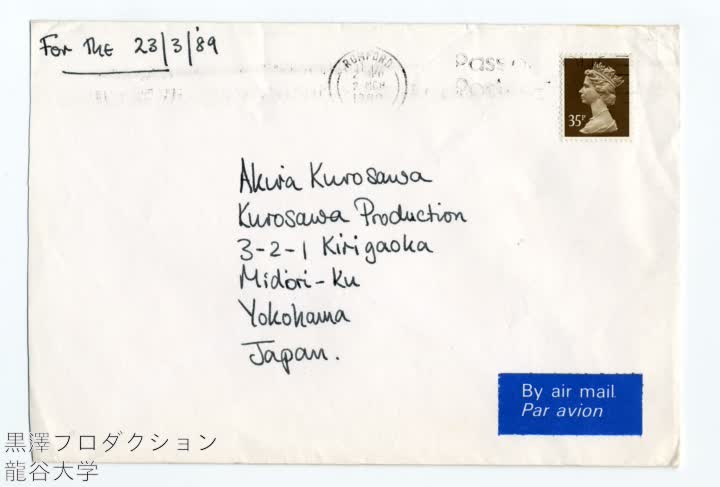 For the 23/3/'89
ROMFORD
35P
Akira Kurosawa
Kurosawa Production
3-2-1 Kirigaoka
Midori-ku
Yokohama
Japan.
By air mail
Par avion
黒澤フロダクション
龍谷大学